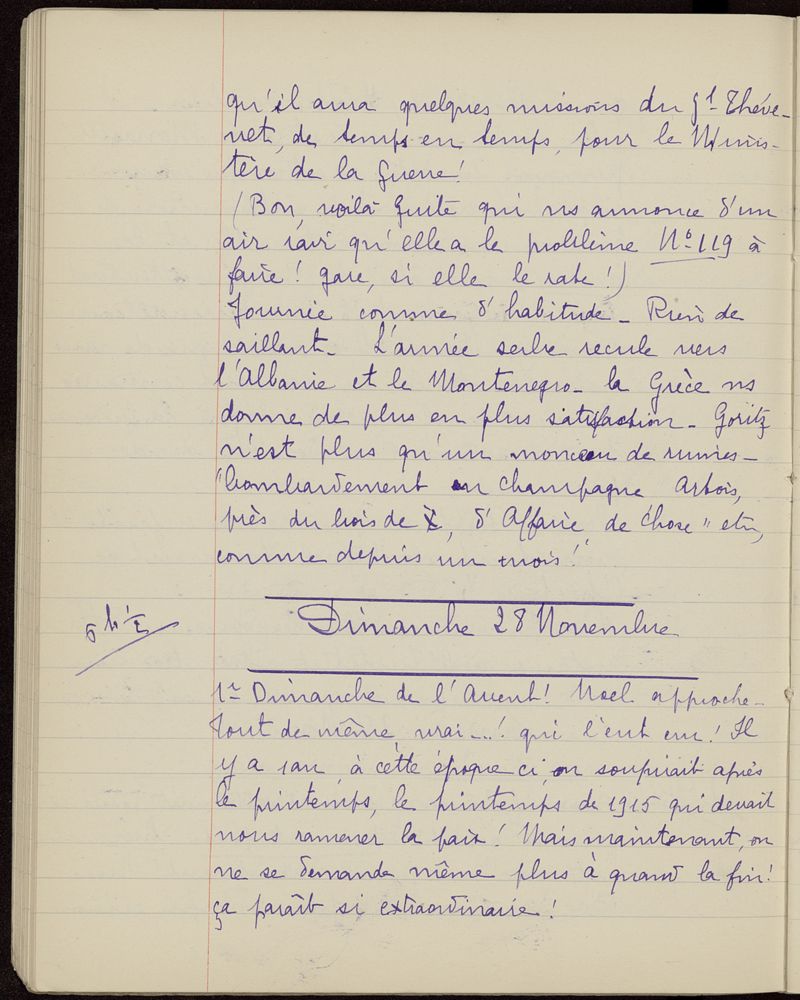 qu'il aura quelques missions du Gl Théve-
net, de temps en temps, pour le Minis-
tère de la Guerre!
(Bon, voilà Guite qui ns annonce d'un
air ravi qu'elle a le problème No 119 à
faire! gare, si elle le rate!)
Journée comme d'habitude_ Rien de
saillant_ L'armée serbe recule vers
l'Albanie et le Montenegro_ la Grèce ns
donne de plus en plus satisfaction_ Goritz
n'est plus qu'un monceau de ruines_
"bombardement en Champagne Artois,
près du bois de X, d'Affaire de Chose" etc,
comme depuis un mois!
Dimanche 28 Novembre
5 h 1/2
1er Dimanche de l'Avent! Noel approche_
tout de même, vrai...! qui l'eut cru! Il
y a 1 an, à cette époque ci, on soupirait après
le printemps, le printemps de 1915 qui devait
nous ramener la paix! Mais maintenant, on
ne se demande même plus à quand la fin!
ça paraît si extraordinaire!